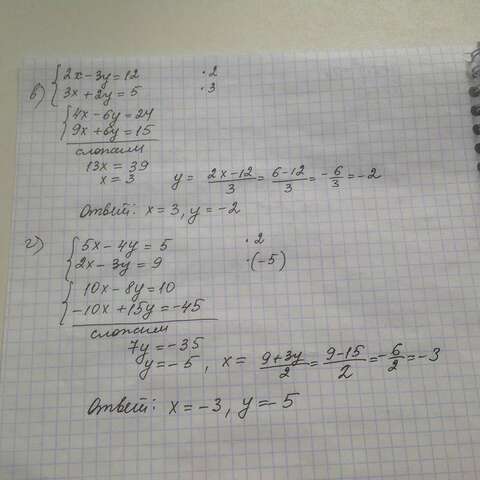 в) { 2x - 3y = 12 · 2
3x + 2y = 5 · 3
{ 4x - 6y = 24
9x + 6y = 15
сложим
13x = 39
x = 3 y = (2x-12)/3 = (6-12)/3 = -6/3 = -2
Ответ: x = 3, y = -2
г) { 5x - 4y = 5 · 2
2x - 3y = 9 · (-5)
{ 10x - 8y = 10
-10x + 15y = -45
сложим
7y = -35
y = -5, x = (9+3y)/2 = (9-15)/2 = -6/2 = -3
Ответ: x = -3, y = -5